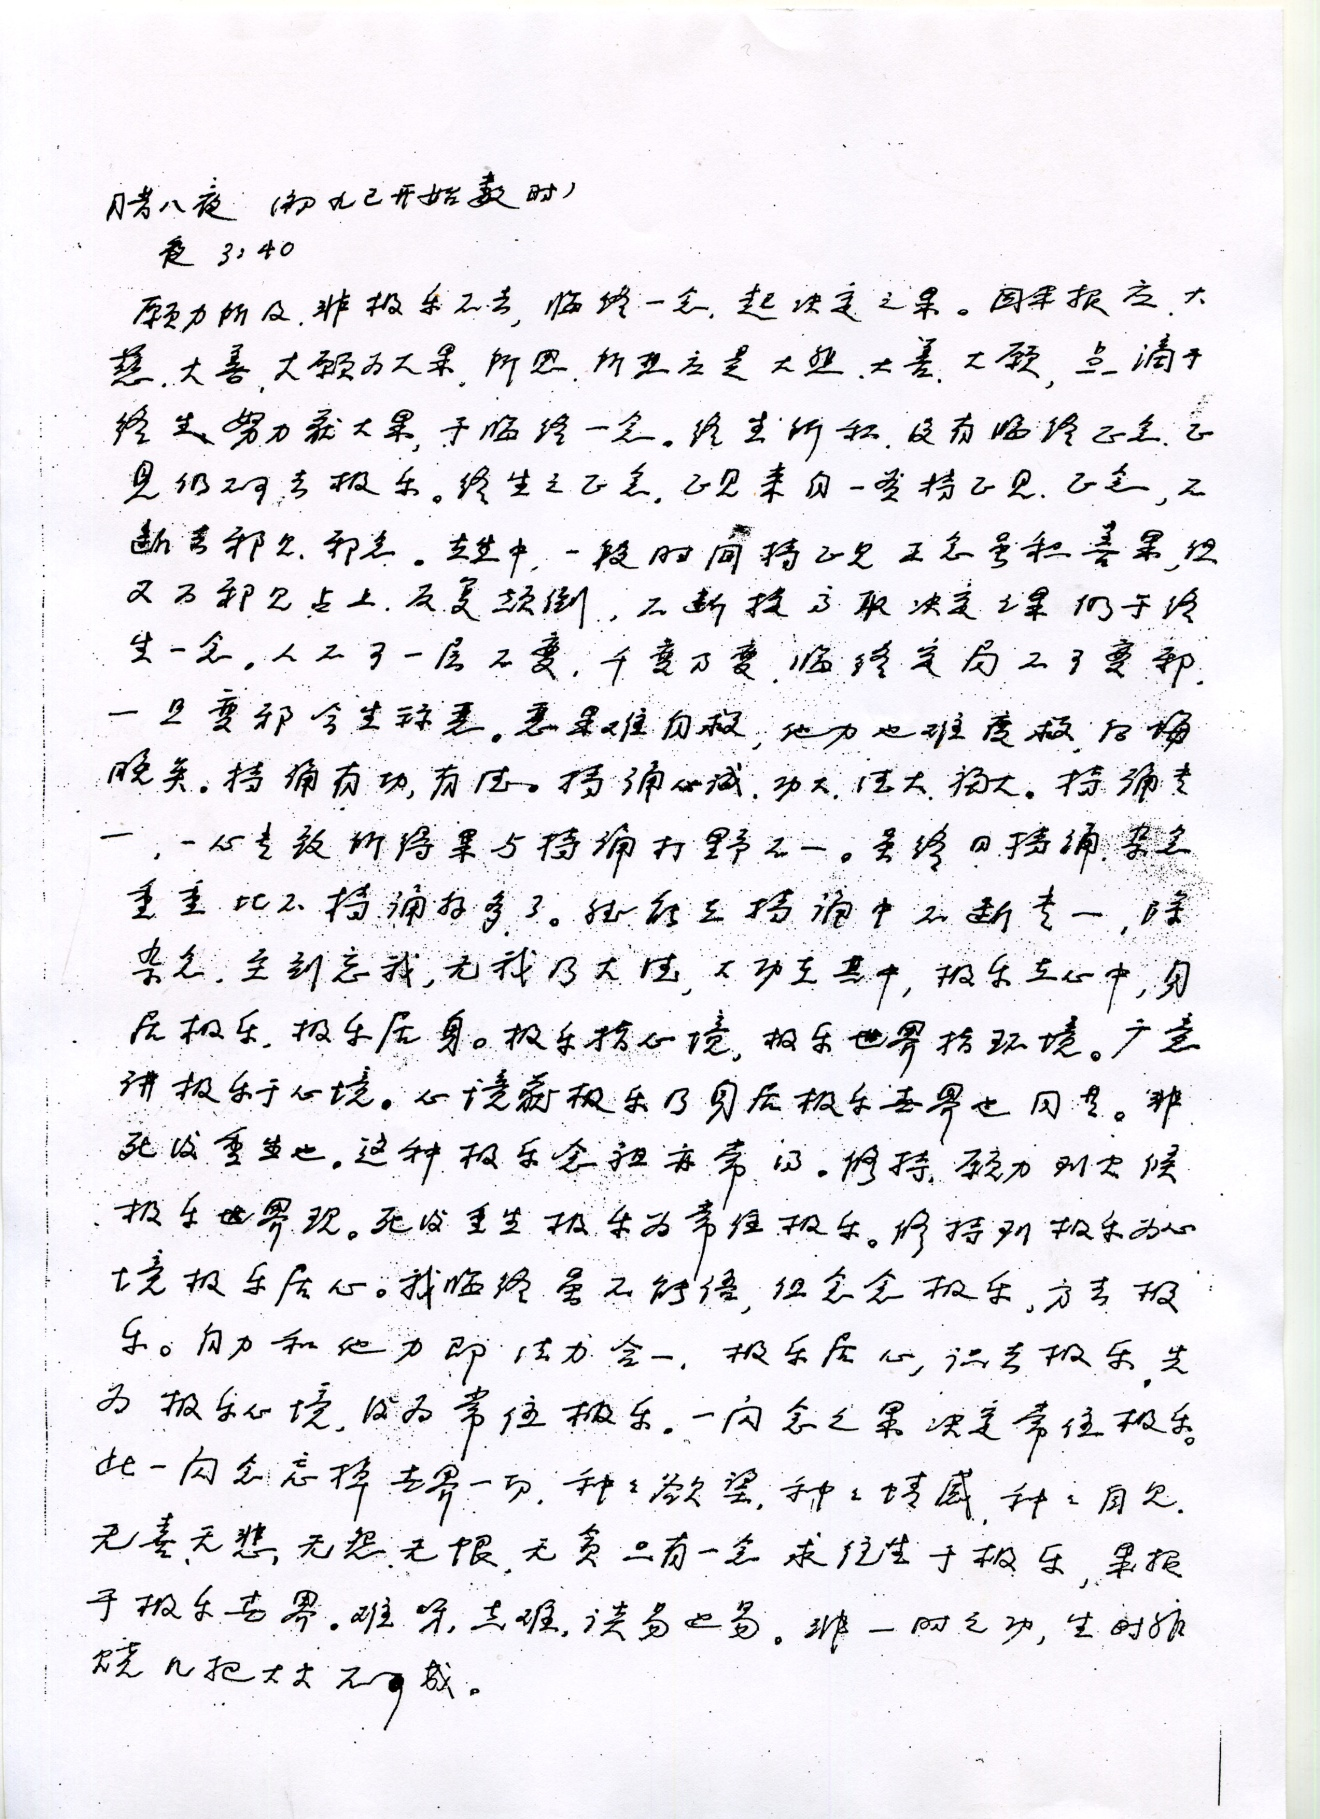 腊八夜（初九已开始数时）
夜 3:40
愿力所及、非极乐不去，临终一念，起决定之果。因果报应、大
慈、大善、大愿为大果，所思、所想应是大慈、大善、大愿，点滴于
终生，努力获大果，于临终一念。终生所积，没有临终正念、正
见仍不可去极乐。终生之正念，正见来自一贯持正见、正念，不
断去邪见、邪念。去世中，一段时间持正见正念虽积善果，但
又为邪见占上，反复颠倒，不断换了取决定之果仍于终
生一念。人不可一层不变，千变万变，临终定局不可变邪，
一旦变邪今生称恶。恶果难自救，他力也难度救，后悔
晚矣。持诵有功，有法。持诵心诚，功大，法大，福大。持诵专
一，一心专致所得果与持诵打野不一。虽终日持诵，杂念
重重比不持诵好多了。能在持诵中不断专一，除
杂念，至到忘我，无我乃大法，大功在其中，极乐在心中，身
居极乐，极乐居身。极乐指心境，极乐世界指环境。广意
讲极乐于心境。心境获极乐乃身居极乐世界也同是。非
死后重生也。这种极乐念祖亦常得。修持，愿力到火候
极乐世界现。死后重生极乐为常住极乐。修持到极乐为心
境极乐居心。我临终虽不能悟，但念念极乐，方去极
乐。自力和他力即法力合一，极乐居心，识去极乐，先
为极乐心境，后为常住极乐。一闪念之果决定常住极乐。
此一闪念忘掉世界一切，种种欲望，种种情感，种种自见，
无喜、无悲，无怨，无恨，无贪只有一念求往生于极乐，果报
于极乐世界。难呀，真难，谈易也易。非一时之功，生时能
烧几把大火不可成。